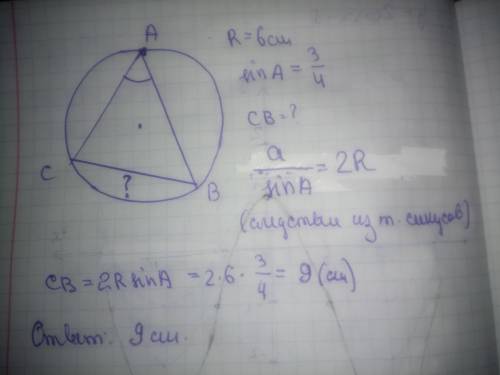 A
R = 6 см
sin A = 3/4
CB = ?
C
?
B
a/sin A = 2R
(следствие из т. синусов)
CB = 2R sin A = 2·6·3/4 = 9 (см)
Ответ: 9 см.